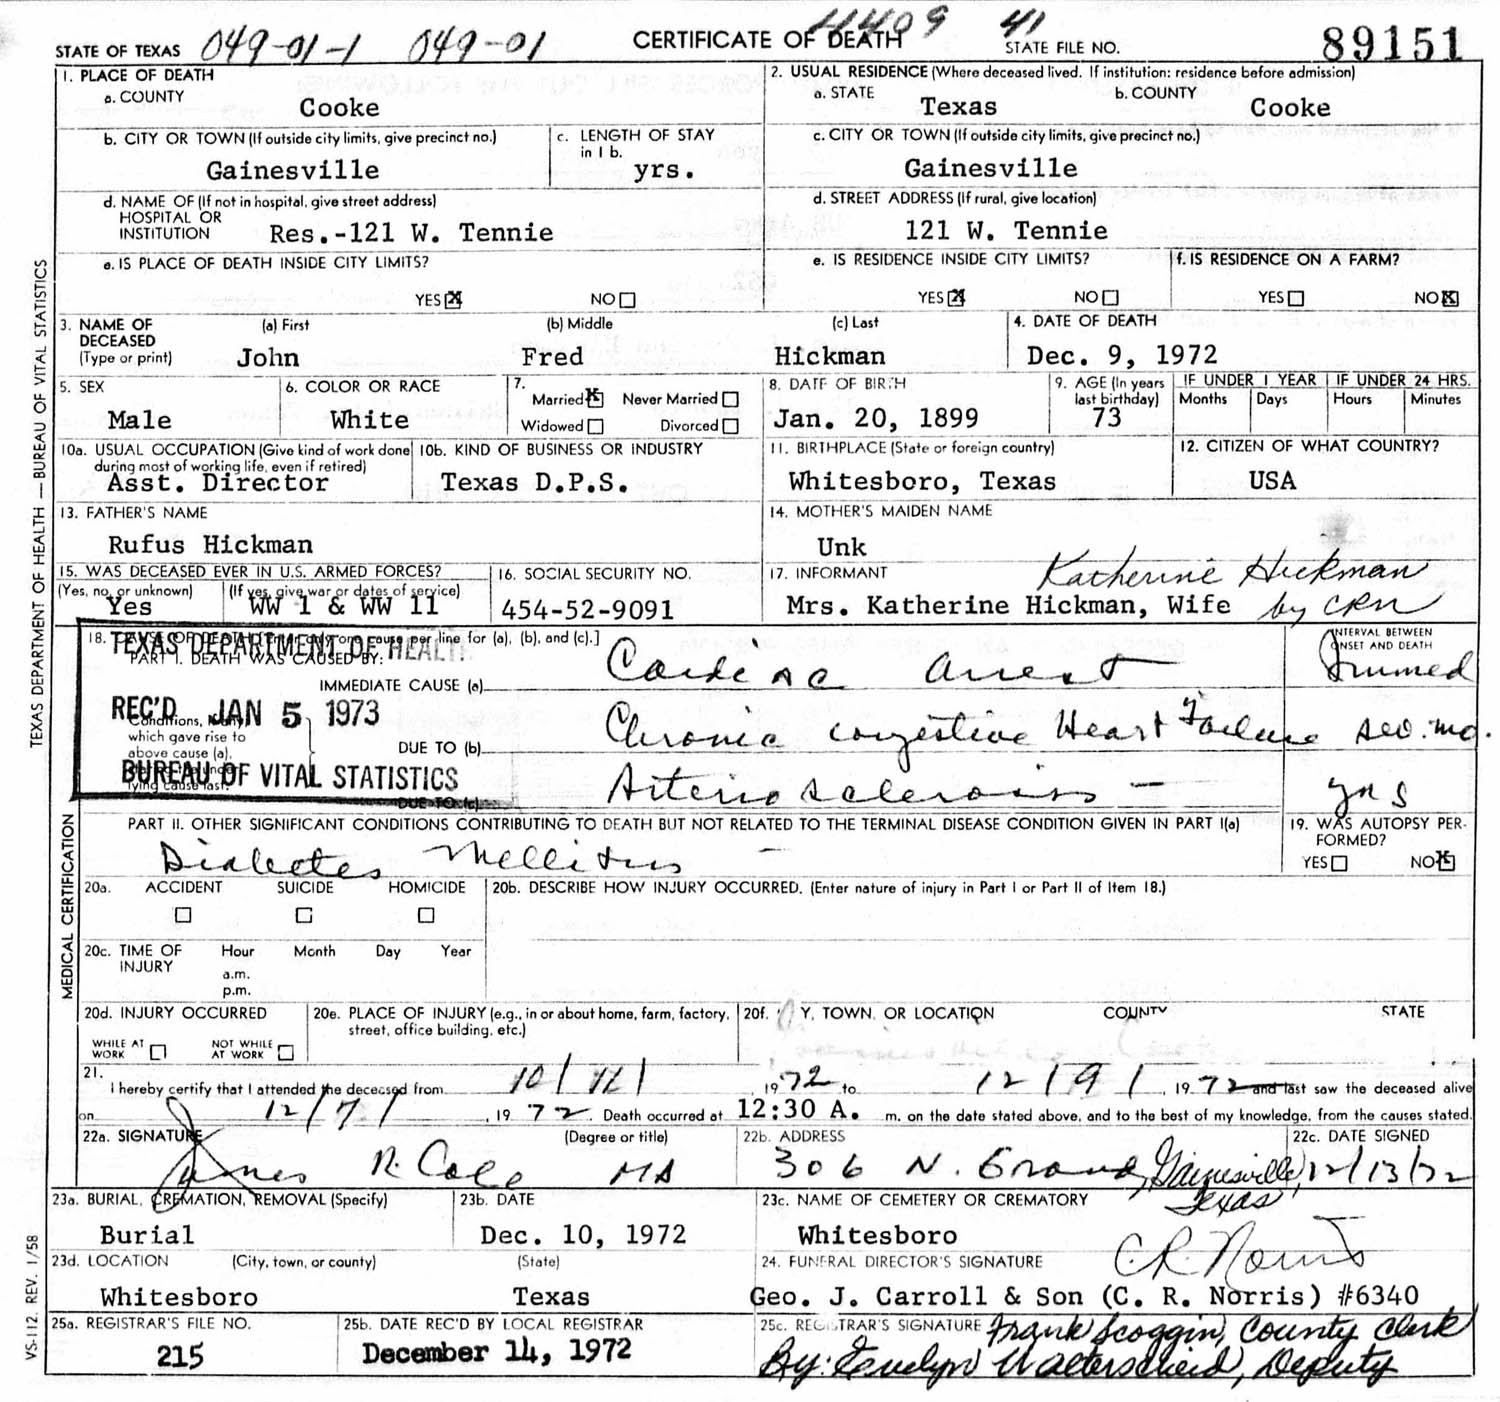 STATE OF TEXAS 049-01-1 049-01 CERTIFICATE OF DEATH 4409 41 STATE FILE NO. 89151
1. PLACE OF DEATH
a. COUNTY
Cooke
2. USUAL RESIDENCE (Where deceased lived. If institution: residence before admission)
a. STATE b. COUNTY
Texas Cooke
b. CITY OR TOWN (If outside city limits, give precinct no.)
Gainesville
c. LENGTH OF STAY
in 1 b.
yrs.
c. CITY OR TOWN (If outside city limits, give precinct no.)
Gainesville
d. NAME OF (If not in hospital, give street address)
HOSPITAL OR
INSTITUTION Res.-121 W. Tennie
d. STREET ADDRESS (If rural, give location)
121 W. Tennie
e. IS PLACE OF DEATH INSIDE CITY LIMITS?
YES X NO
e. IS RESIDENCE INSIDE CITY LIMITS?
YES X NO
f. IS RESIDENCE ON A FARM?
YES NO X
3. NAME OF DECEASED
(Type or print)
(a) First (b) Middle (c) Last
John Fred Hickman
4. DATE OF DEATH
Dec. 9, 1972
5. SEX
Male
6. COLOR OR RACE
White
7.
Married X Never Married
Widowed Divorced
8. DATE OF BIRTH
Jan. 20, 1899
9. AGE (In years
last birthday)
73
IF UNDER 1 YEAR IF UNDER 24 HRS.
Months Days Hours Minutes
10a. USUAL OCCUPATION (Give kind of work done
during most of working life, even if retired)
Asst. Director
10b. KIND OF BUSINESS OR INDUSTRY
Texas D.P.S.
11. BIRTHPLACE (State or foreign country)
Whitesboro, Texas
12. CITIZEN OF WHAT COUNTRY?
USA
13. FATHER'S NAME
Rufus Hickman
14. MOTHER'S MAIDEN NAME
Unk
15. WAS DECEASED EVER IN U.S. ARMED FORCES?
(Yes, no, or unknown) (If yes, give war or dates of service)
Yes WW 1 & WW 11
16. SOCIAL SECURITY NO.
454-52-9091
17. INFORMANT Katherine Hickman
Mrs. Katherine Hickman, Wife by CRN
18. CAUSE OF DEATH [Enter only one cause per line for (a), (b), and (c).]
PART I. DEATH WAS CAUSED BY:
TEXAS DEPARTMENT OF HEALTH
REC'D JAN 5 1973
BUREAU OF VITAL STATISTICS
INTERVAL BETWEEN
ONSET AND DEATH
IMMEDIATE CAUSE (a) Cardiac arrest Immed
Conditions,
which gave rise to
above cause (a),
lying cause last.
DUE TO (b) Chronic congestive Heart Failure sev. mo.
DUE TO (c) Arteriosclerosis — yrs
PART II. OTHER SIGNIFICANT CONDITIONS CONTRIBUTING TO DEATH BUT NOT RELATED TO THE TERMINAL DISEASE CONDITION GIVEN IN PART I(a)
Diabetes Mellitus —
19. WAS AUTOPSY PER-
FORMED?
YES NO X
20a. ACCIDENT SUICIDE HOMICIDE
20b. DESCRIBE HOW INJURY OCCURRED. (Enter nature of injury in Part I or Part II of Item 18.)
20c. TIME OF
INJURY
Hour Month Day Year
a.m.
p.m.
20d. INJURY OCCURRED
WHILE AT
WORK
NOT WHILE
AT WORK
20e. PLACE OF INJURY (e.g., in or about home, farm, factory,
street, office building, etc.)
20f. Y, TOWN, OR LOCATION COUNTY STATE
21.
I hereby certify that I attended the deceased from 10/11/ 1972 to 12/9/, 1972 and last saw the deceased alive
on 12/7/, 1972. Death occurred at 12:30 A. m. on the date stated above, and to the best of my knowledge, from the causes stated.
22a. SIGNATURE (Degree or title)
James R. Cole MD
22b. ADDRESS
306 N. Grand, Gainesville, Texas
22c. DATE SIGNED
12/13/72
23a. BURIAL, CREMATION, REMOVAL (Specify)
Burial
23b. DATE
Dec. 10, 1972
23c. NAME OF CEMETERY OR CREMATORY
Whitesboro
23d. LOCATION (City, town, or county) (State)
Whitesboro Texas
24. FUNERAL DIRECTOR'S SIGNATURE C.R. Norris
Geo. J. Carroll & Son (C. R. Norris) #6340
25a. REGISTRAR'S FILE NO.
215
25b. DATE REC'D BY LOCAL REGISTRAR
December 14, 1972
25c. REGISTRAR'S SIGNATURE Frank Scoggin, County Clerk
By: Evelyn Walterscheid, Deputy
TEXAS DEPARTMENT OF HEALTH — BUREAU OF VITAL STATISTICS
MEDICAL CERTIFICATION
VS-112 REV. 1/58